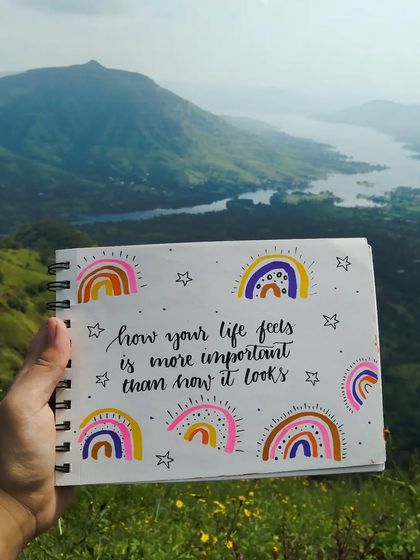 how your life feels
is more important
than how it looks